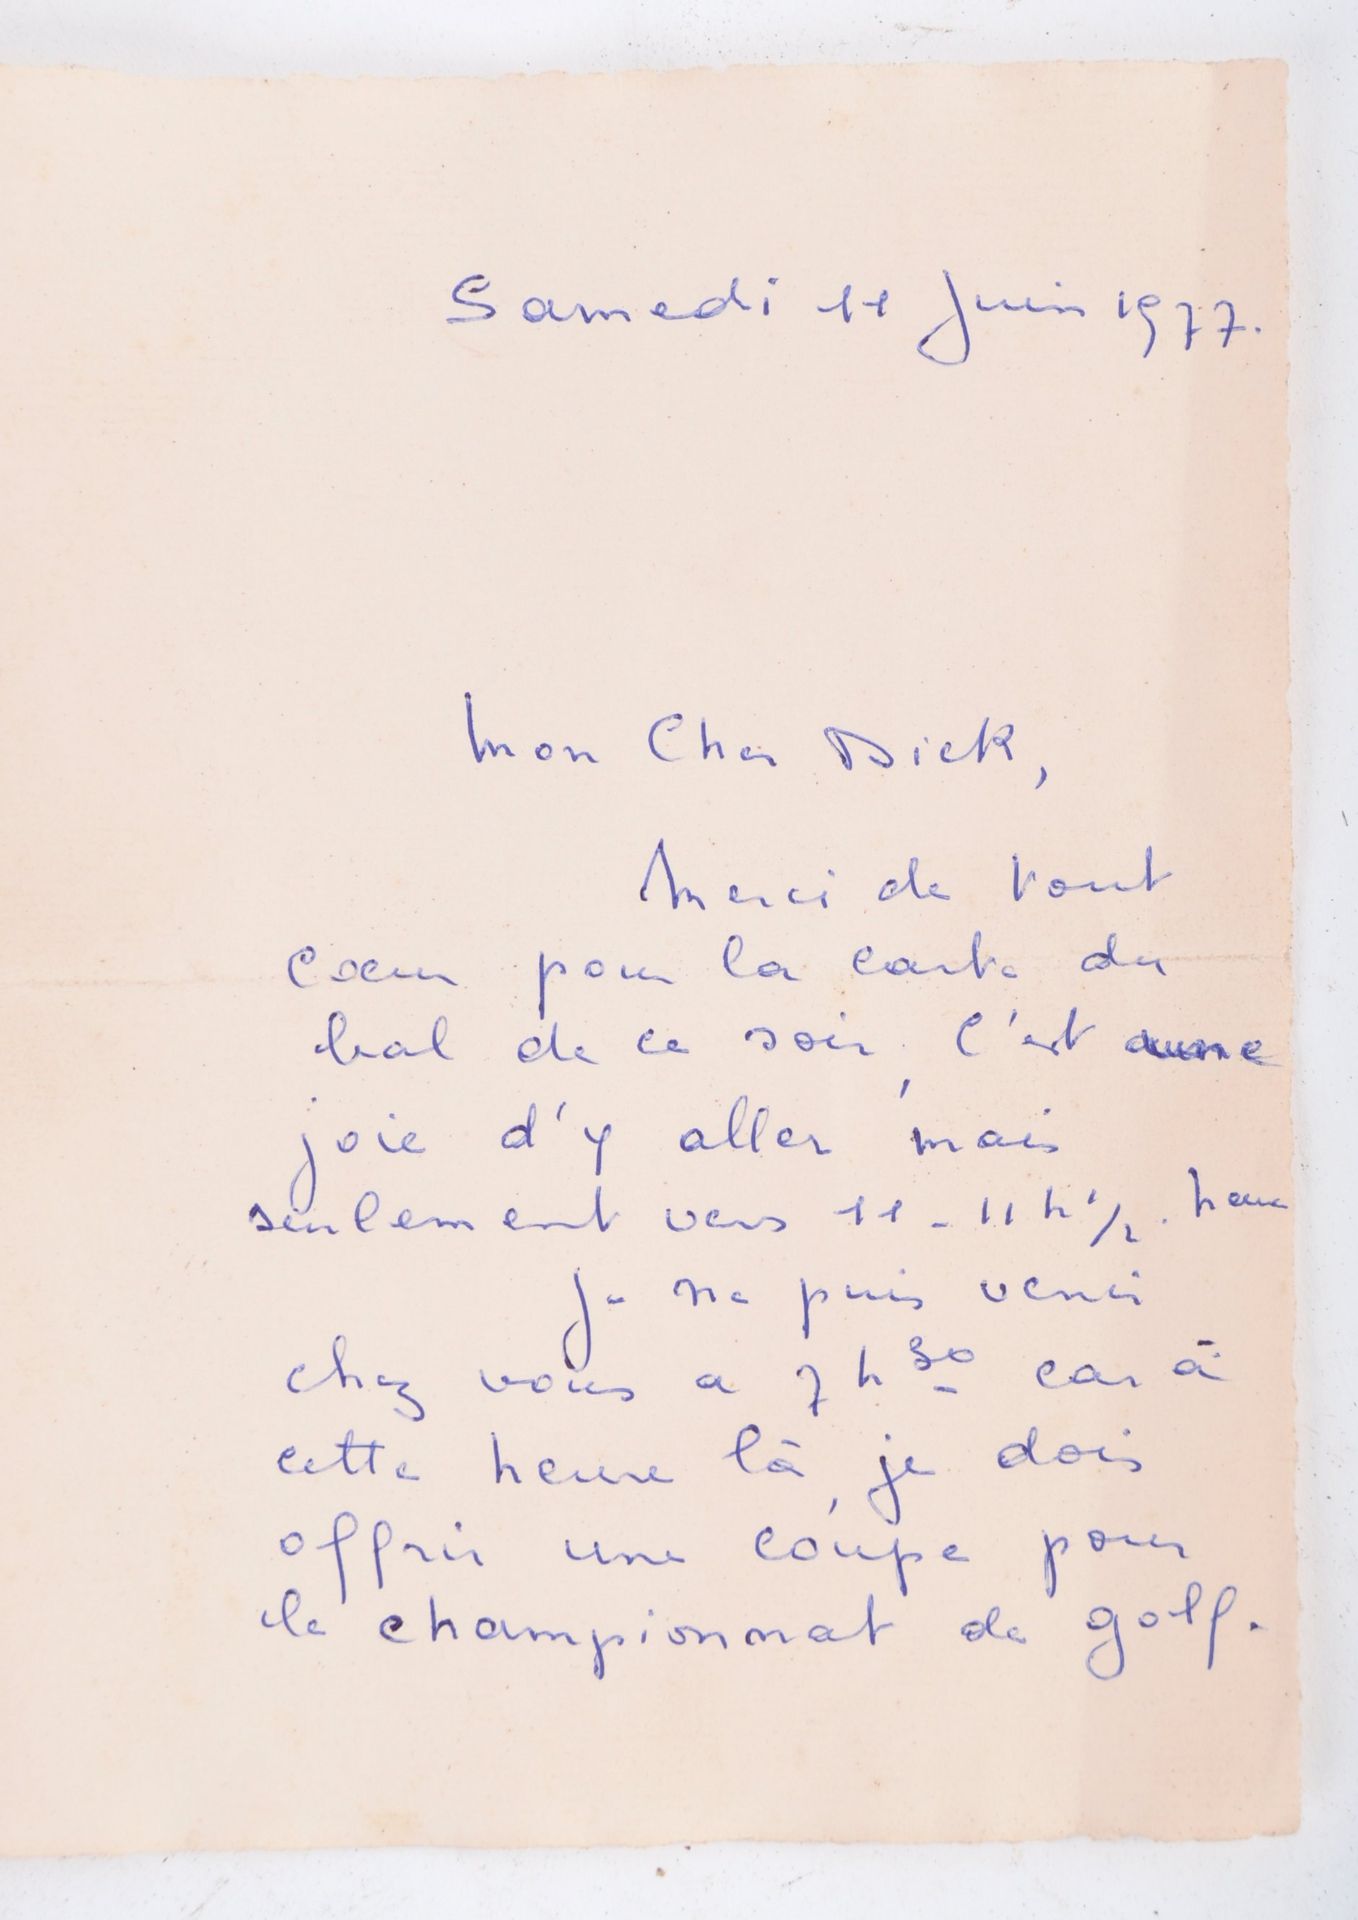 Samedi 11 Juin 1977.
Mon Cher Dick,
Merci de tout
cœur pour la carte du
bal de ce soir, c'est une
joie d'y aller mais
seulement vers 11-11h½. heure
Je ne puis venir
chez vous a 7h30 car à
cette heure là, je dois
offrir une coupe pour
le championnat de golf.